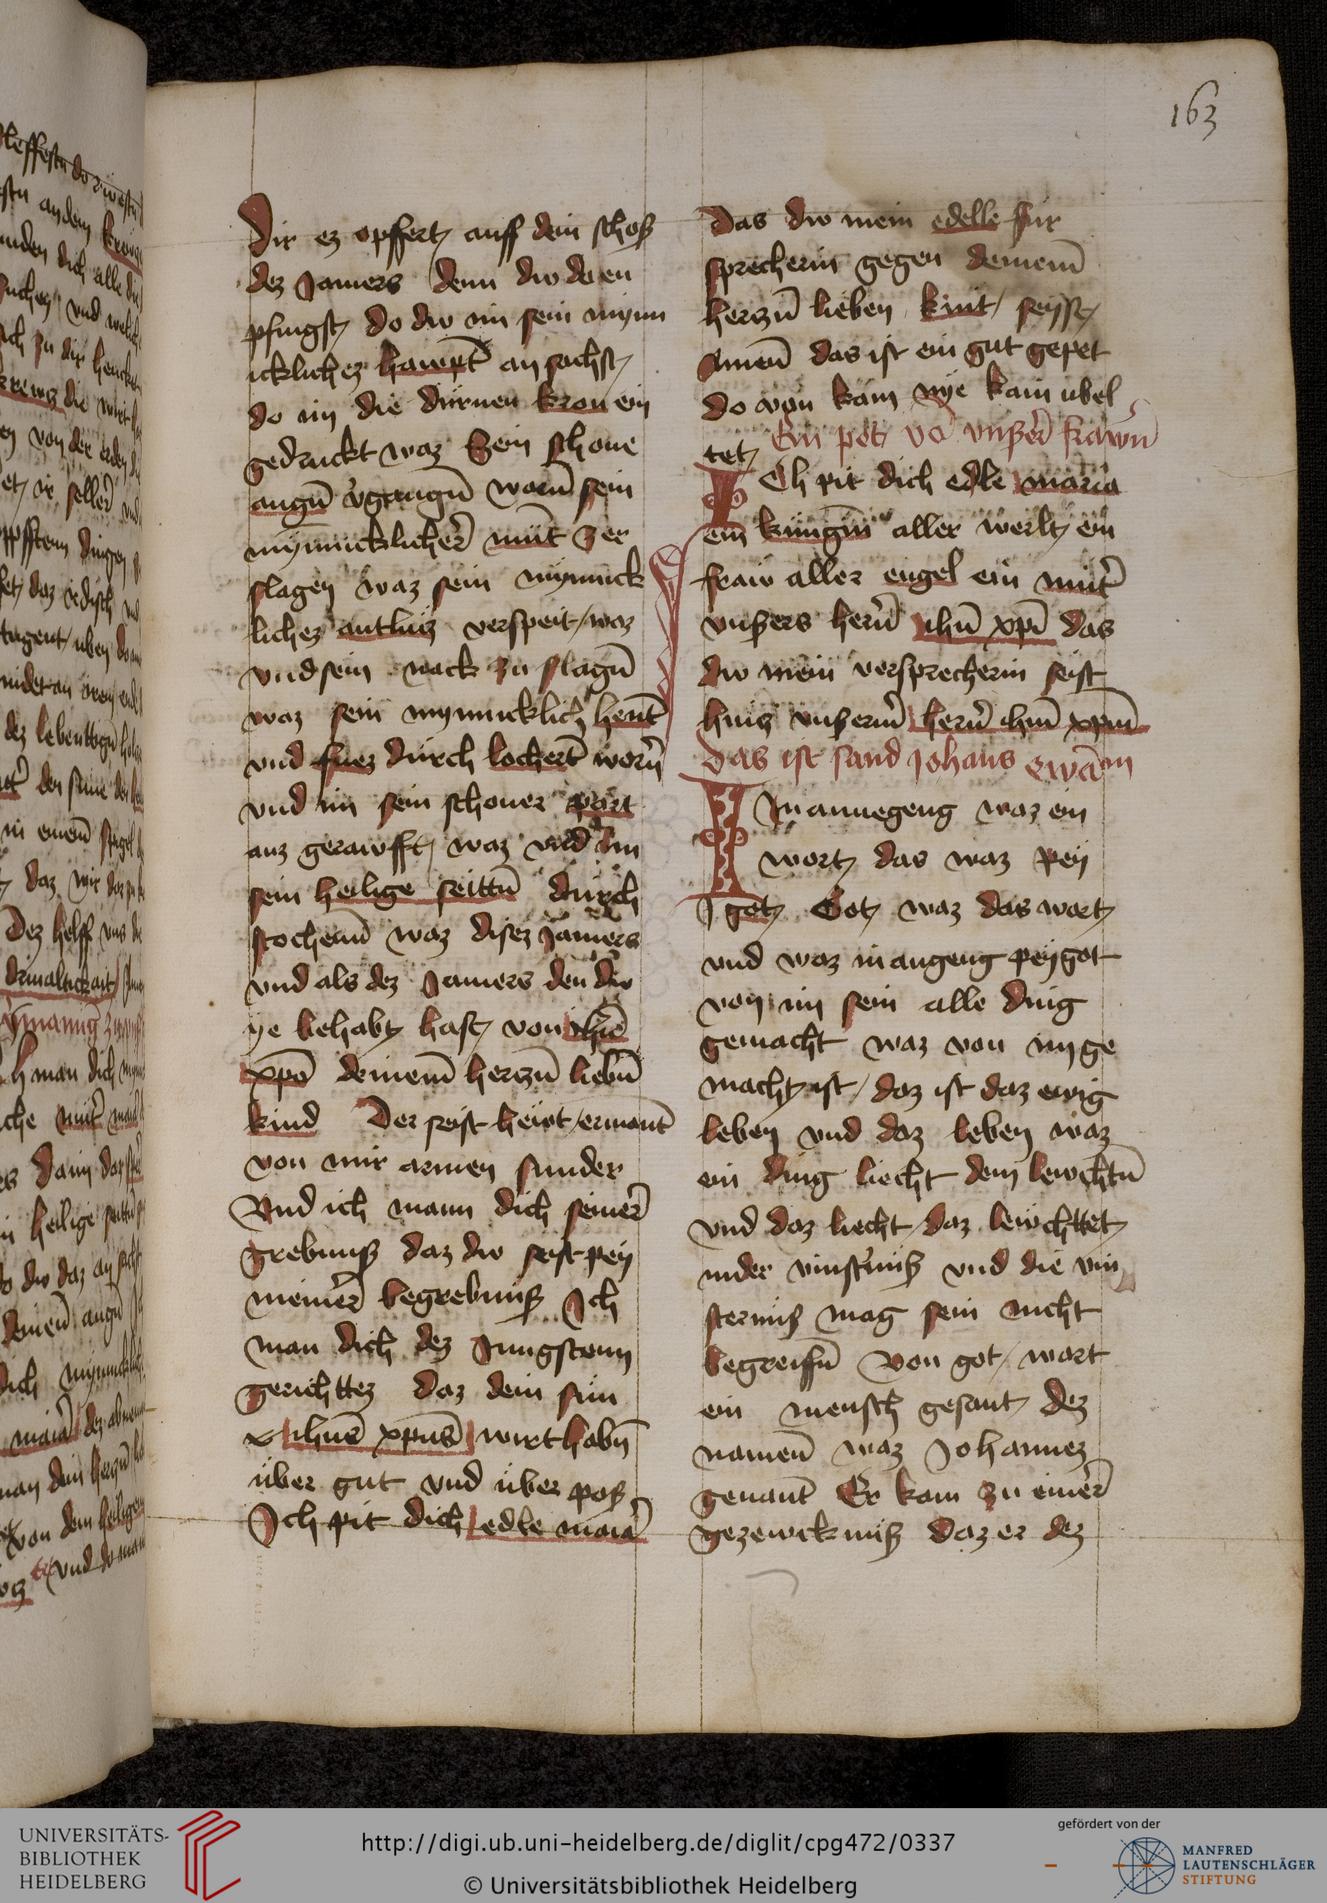 163
Dir ez opffert auff dein schoß
dez Jamers denn dw do en
pfingst do dw im sein mynn
icklichez hawpt an sachst
do im die dürnen kron ein
gedruckt waz Sein schone
augñ v̉gangñ warñ sein
mynnicklicher̄ mūt zer
slagen waz sein mynnick
lichez antlutz verspeit waz
vnd sein nack zu slagñ
waz sein mynnicklich hent̄
vnd fuez durch lochert̄ worñ
vnd im sein schoner part
auz gerawfft waz vnd im
sein heilige seittñ durch
stochenn̄ waz disez Jamers
vnd als dez Jamers den dw
ye behabt hast von ihū
xpō deinem̄ herczñ liebñ
kind Der seist hewt ermant̄
von mir armen sunder
Vnd ich mann dich seiner̄
grebnuß daz dw seist pey
meiner̄ begrebnuß Ich
man dich dez Jungstenn
gerichttez daz dein sun
ihus̄ xpus̄ wirt habñ
über gut vnd über poß
Ich pit dich edle maiā
Das dw mein edelle für
sprecherin gegen deinem̄
herczñ lieben kint seyst
Amen̄ das ist ein gut gepet
do von kam nye kain ubel
tet Ein pet vō vnßer̄ frawn̄
Ich pit dich edle maria
ein kungin̄ aller werlt ein
fraw aller engel ein mūt̄
vnßers herñ ihū xpī das
dw mein versprecherin seist
hincz vnßerm̄ herñ ihm̄ xpm̄
Das ist sand Johans ewām
In annegeng waz ein
wort das waz pey
got Got waz das wort
vnd waz in angeng pey got
von im sein alle ding
gemacht waz von im ge
macht ist daz ist daz ewig
leben vnd daz leben waz
ein ding liecht dem lewchtñ
vnd daz liecht daz lewchttet
in der vinsternuß vnd die vin
sternuß mag sein nicht
begreiffñ Von got wart
ein mensch gesant dez
namen̄ waz Johannez
genant̄ Er kam zu einer̄
gezewcknuß daz er dez
UNIVERSITÄTS-
BIBLIOTHEK
HEIDELBERG
http://digi.ub.uni-heidelberg.de/diglit/cpg472/0337
© Universitätsbibliothek Heidelberg
gefördert von der
MANFRED
LAUTENSCHLÄGER
STIFTUNG